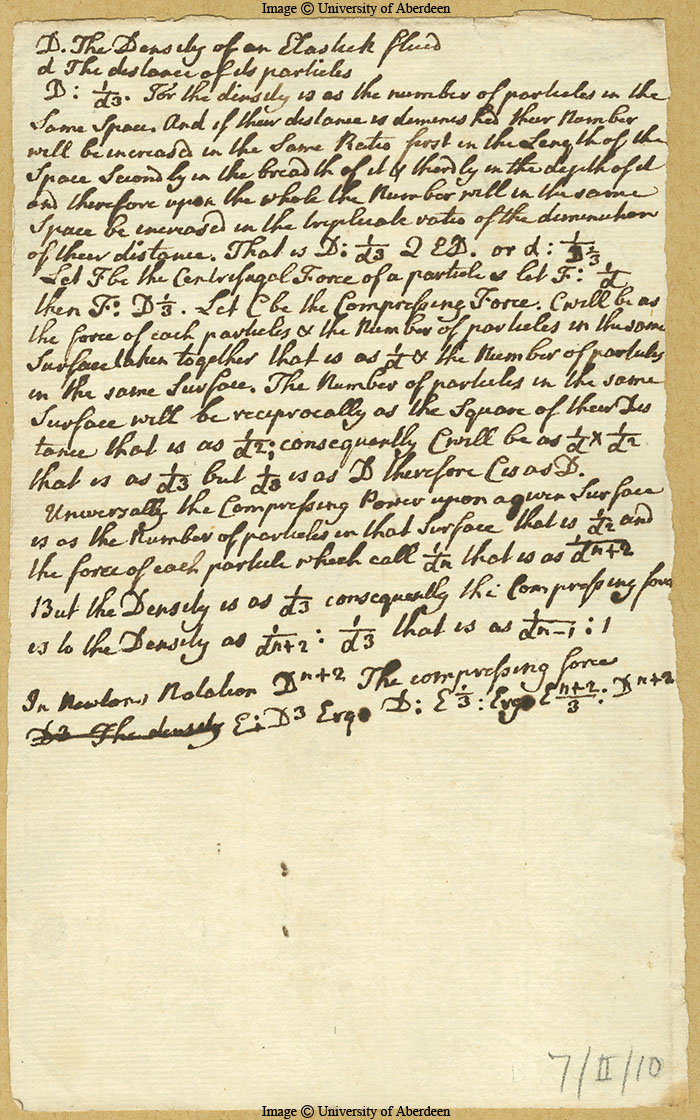 Image © University of Aberdeen
D. The Density of an Elastick fluid
d The distance of its particles
D : 1/d3. For the density is as the number of particles in the
Same Space. And if their distance is deminished their Number
will be increased in the Same Ratio first in the Length of the
Space Secondly in the breadth of it & thirdly in the depth of it
and therefore upon the whole the Number will in the same
Space be increased in the triplicate ratio of the diminution
of their distance. That is D: 1/d3 Q E D. or d : 1/D1/3
Let F be the Centrifugal Force of a particle & let F: 1/d
then F: D1/3. Let C be the Compressing Force. C will be as
the force of each particles & the Number of particles in the same
Surface taken together that is as 1/d & the Number of particles
in the same Surface. The Number of particles in the same
Surface will be reciprocally as the Square of their Dis
tance that is as 1/d2; consequently C will be as 1/d × 1/d2
that is as 1/d3 but 1/d3 is as D therefore C is as D.
Universally the Compressing Power upon a given Surface
is as the Number of particles in that Surface that is 1/d2 and
the force of each particle which call 1/dn that is as 1/dn+2
But the Density is as 1/d3 consequently the Compressing force
is to the Density as 1/dn+2 : 1/d3 that is as 1/dn-1 : 1
In Newtons Notation Dn+2 The compressing force
D3 The density E : D3 Ergo D : E1/3 : Ergo En+2/3 : Dn+2
7/II/10
Image © University of Aberdeen